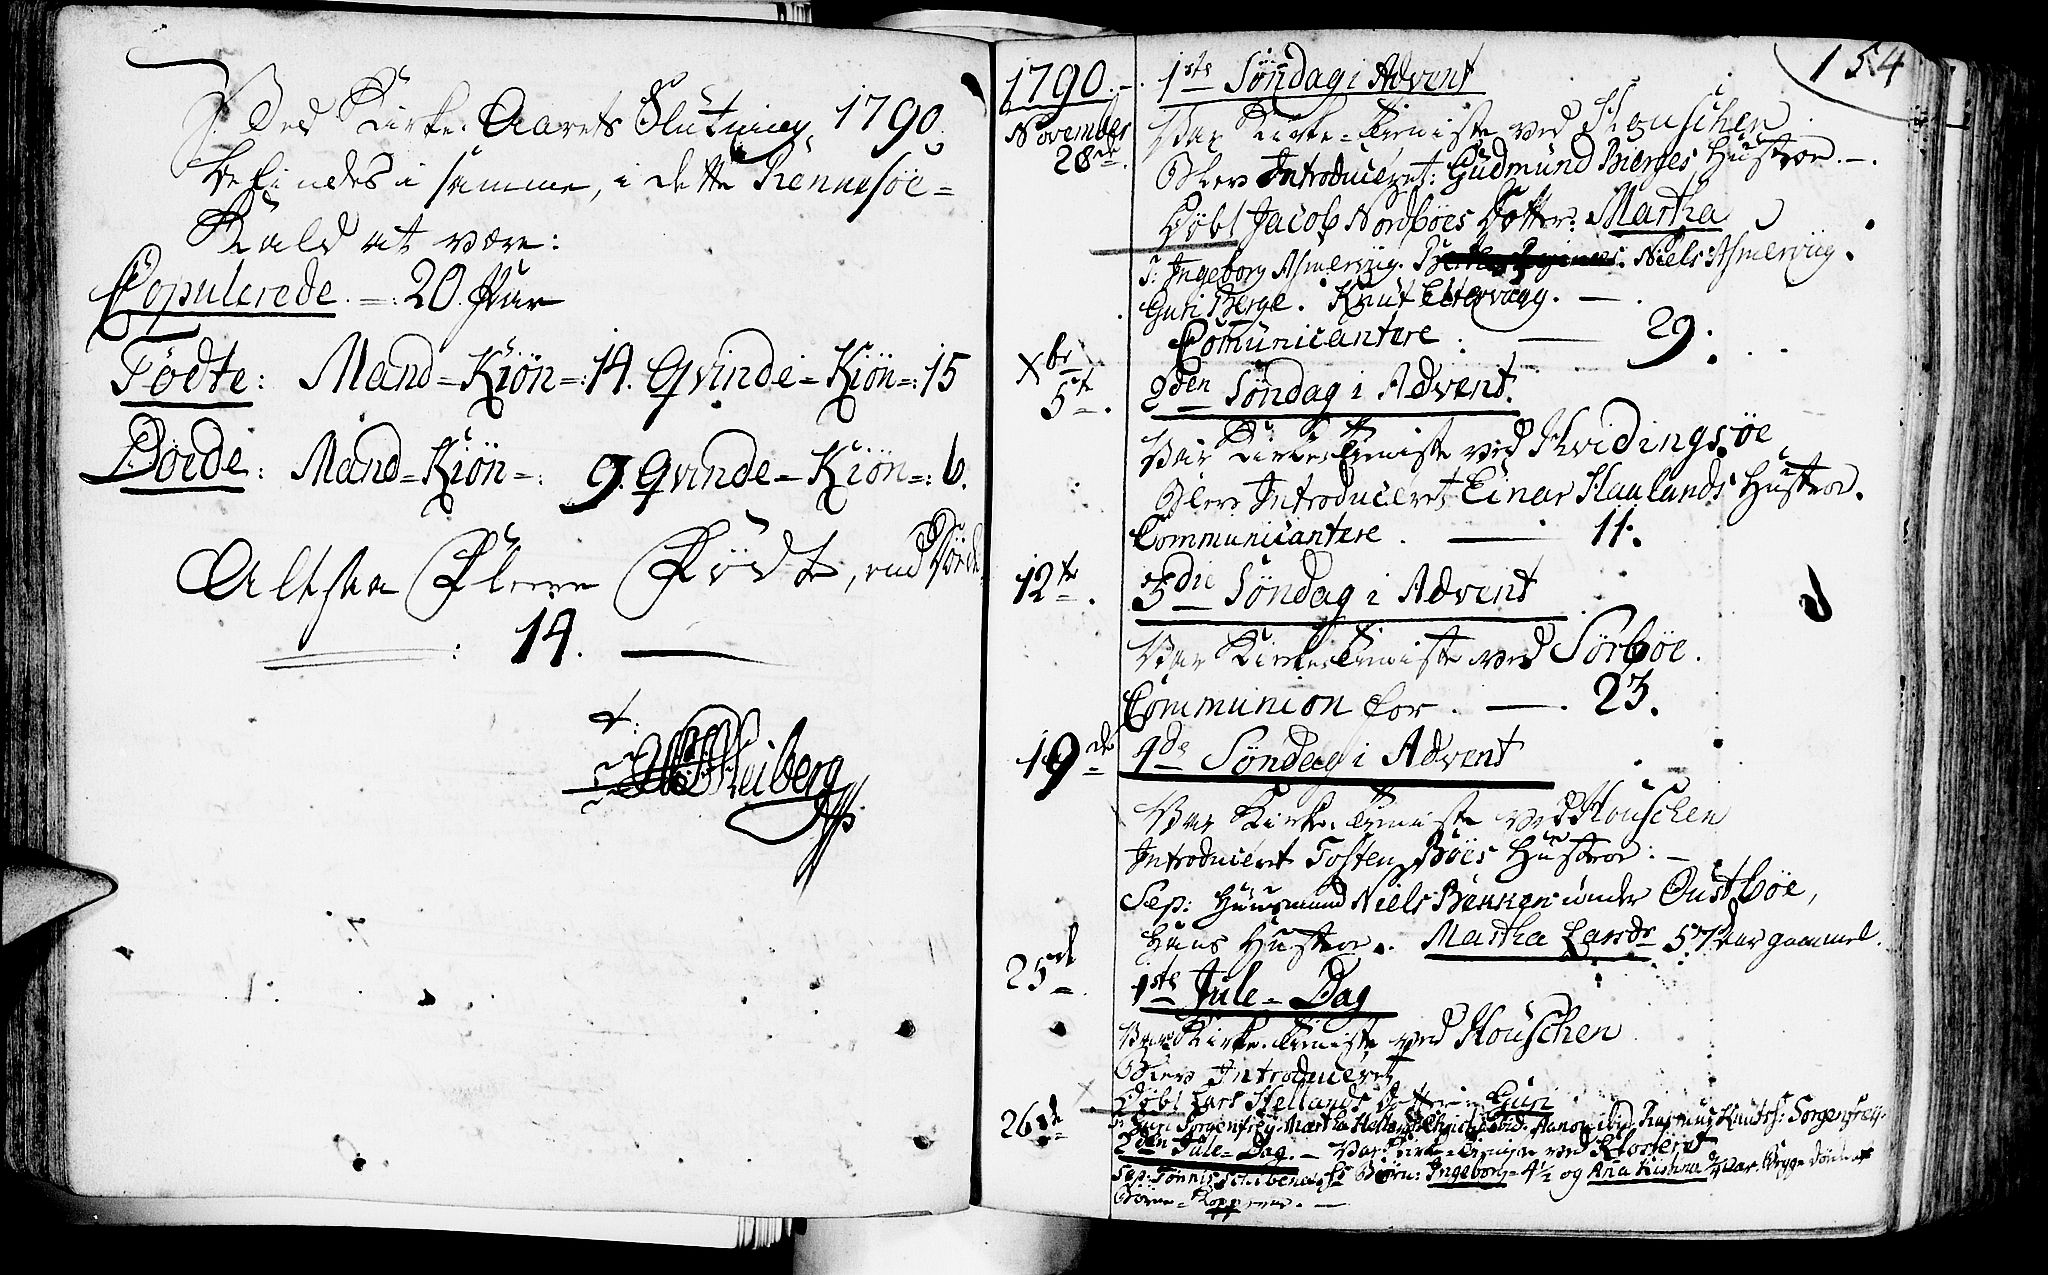 Ved Kirke-Aarets Slutning, 1790.
befindes i samme, i dette Rennesöe-
Kald at være:
Copulerede. -: 20. Par
Födte: Mand-Kiön-: 14. Qvinde-Kiön-: 15
Döede: Mand-Kiön-: 9. Qvinde-Kiön-: 6.
Altsaa Flere Födt, end Döde
: 14. —
Heiberg
154
1790. - 1ste Söndag i Advent
November 28de. Var Kirke-Tieniste ved Houschen
Blev Introduceret: Gudmund Bierges Hustroe. -.
Döbt Jacob Nordböes Dotter: Martha
F: Ingeborg Asmervig. Niels Asmervig.
Guri Berge. Knut Eltervaag. -
Comunicantere. — 29.
Xbr 5te. 2den Söndag i Advent.
Var Kirke-Tieniste ved Hvidingsöe
Blev Introduceret Einar Haalands Hustroe.
Communicantere. — 11.
12te. 3die Söndag i Advent
Var Kirke-Tieniste ved Sörböe.
Communion for. — . 23.
19de 4de Söndag i Advent
Var Kirke-Tieniste ved Houschen
Introduceret Tosten Böes Hustroe: -
Sep: Huusmand Niels Bekken under Oustböe,
Hans Hustroe. Martha Larsdr 57 Aar gammel.
25de 1ste Jule-Dag
Var Kirke-Tieniste ved Houschen
Blev Introduceret
Döbt Lars Hellands Dotter: Guri
F: Guri Sorgenfrey. Martha Helland. ibid. Aanon ibid. Rasmus Knuts: Sorgenfrey.
26de 2den Jule-Dag. - Var Kirke-Tieniste ved Klosteret
Sep: Tönnis Börn: Ingeborg - 4 1/2 og Ana Kistina Aar. Begge döde af
Börne-Kopperne. -